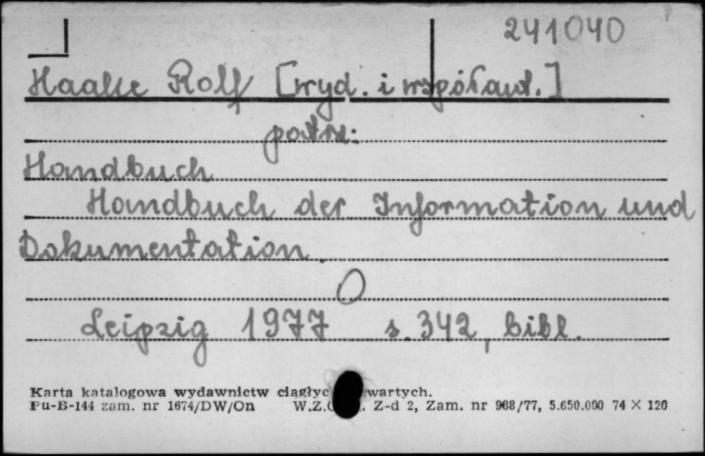 241040
Haake Rolf [wyd. i współaut.]
patrz:
Handbuch
Handbuch der Information und
Dokumentation.
Leipzig 1977 s. 342, bibl.
Karta katalogowa wydawnictw
Pu-B-144 zam. nr 1674/DW/On Z-d 2, Zam. nr 968/77, 5.650.000 74 X 120